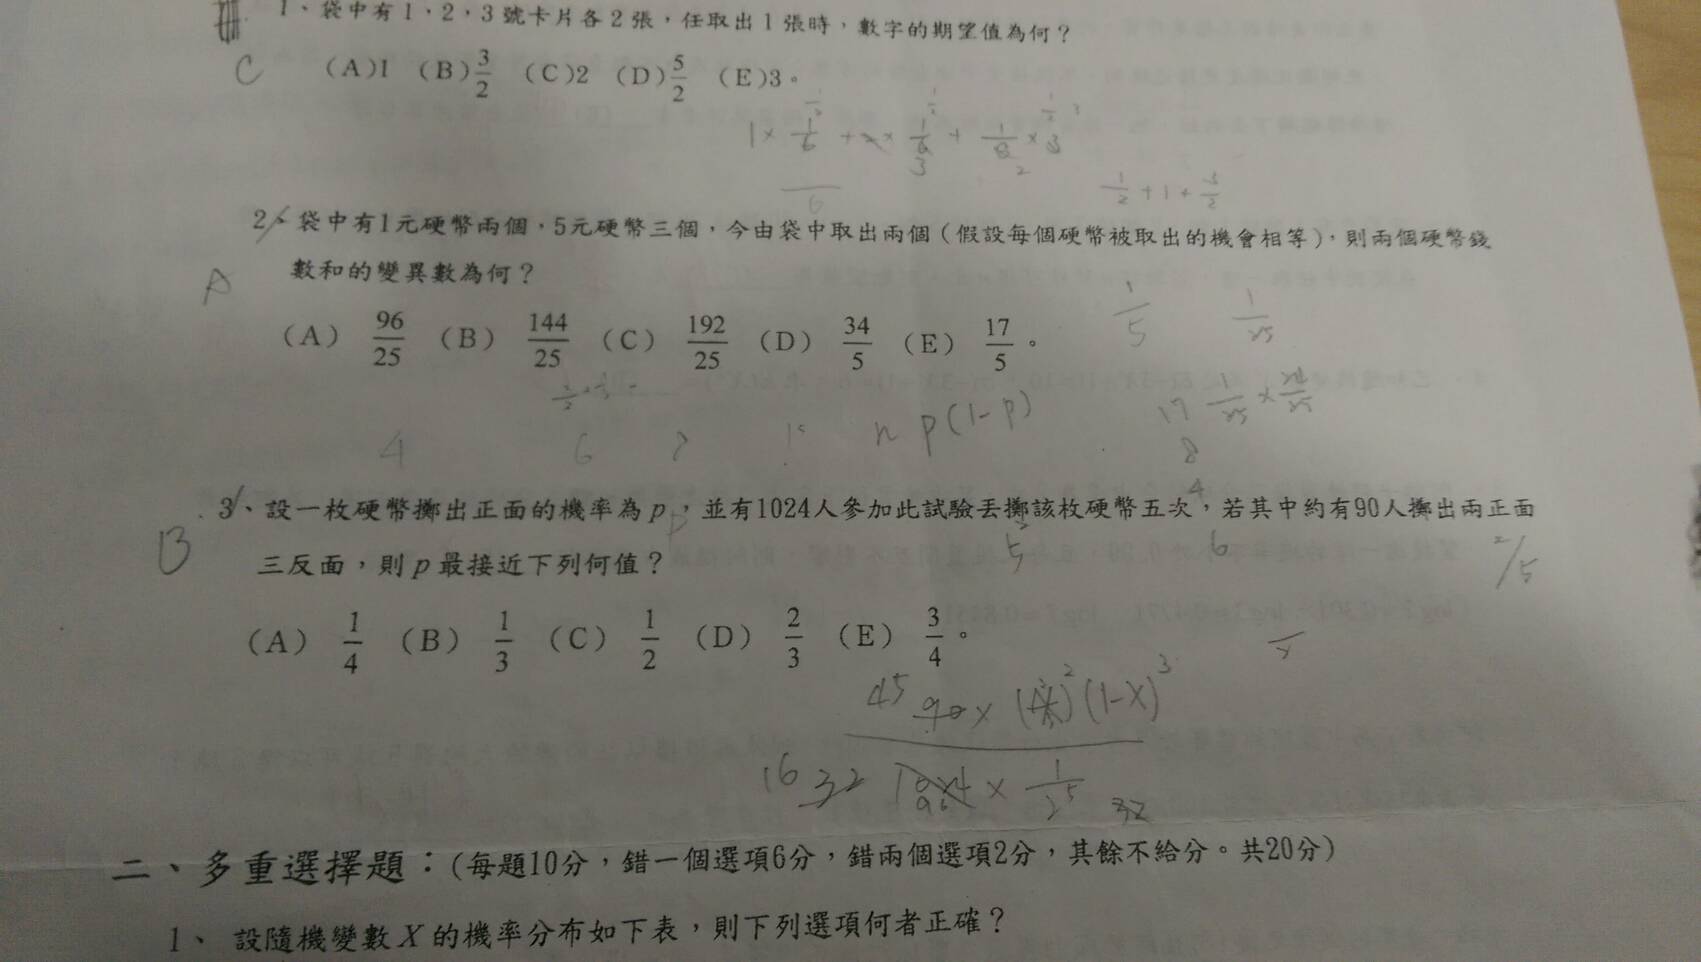 1、袋中有1,2,3號卡片各2張,任取出1張時,數字的期望值為何?
C
(A)1 (B)3/2 (C)2 (D)5/2 (E)3。
1/2 + 1 + 3/2
2、袋中有1元硬幣兩個,5元硬幣三個,今由袋中取出兩個(假設每個硬幣被取出的機會相等),則兩個硬幣錢
數和的變異數為何?
A
1/5 1/25
(A) 96/25 (B) 144/25 (C) 192/25 (D) 34/5 (E) 17/5。
4 6 n p(1-p) 17
8
4
3、設一枚硬幣擲出正面的機率為p,並有1024人參加此試驗丟擲該枚硬幣五次,若其中約有90人擲出兩正面
B
三反面,則p最接近下列何值?
5 6 2/5
(A) 1/4 (B) 1/3 (C) 1/2 (D) 2/3 (E) 3/4。
45 90 × ( )² (1-X)³
16 32 1024 × 1/2⁵ 32
二、多重選擇題:(每題10分,錯一個選項6分,錯兩個選項2分,其餘不給分。共20分)
1、 設隨機變數X的機率分布如下表,則下列選項何者正確?